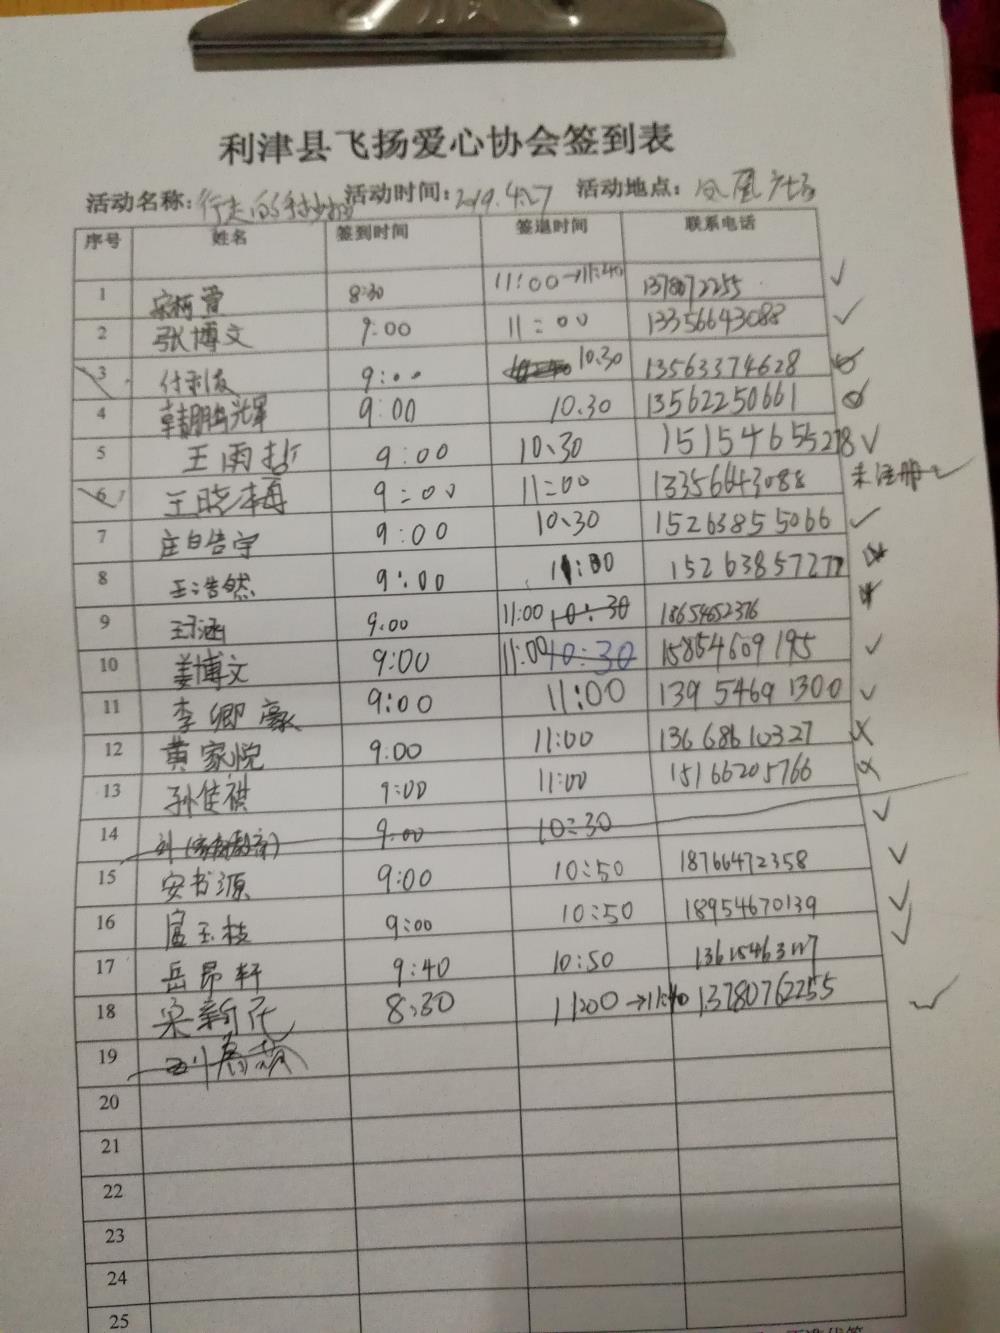 利津县飞扬爱心协会签到表
活动名称: 行走的 活动时间: 2019.4.27 活动地点: 凤凰广场
序号 姓名 签到时间 签退时间 联系电话
1 宋柯萱 8:30 11:00→11:40 1378072255 ✓
2 张博文 9:00 11:00 13356643088 ✓
3 9:00 10.30 13563374628
4 韩鹏 9:00 10.30 13562250661
5 王雨哲 9:00 10、30 15154655278 ✓
6 王晓梅 9:00 11:00 13356643088 未注册
7 庄皓宇 9:00 10、30 15263855066 ✓
8 王浩然 9:00 11:00 15263857277
9 涵 9.00 11:00 10:30 18654652376
10 姜博文 9:00 11:00 10:30 15854609195 ✓
11 李卿豪 9:00 11:00 13954691300 ✓
12 黄家悦 9.00 11:00 13668610327 ×
13 孙佳祺 9:00 11:00 15166205766 ×
14 9:00 10:30 ✓
15 安书源 9:00 10:50 18766472358 ✓
16 扈玉枝 9:00 10:50 18954670139 ✓
17 岳昂轩 9:40 10:50 ✓
18 宋新 8:30 11:00→11:40 13780762255 ✓
19 刘
20
21
22
23
24
25